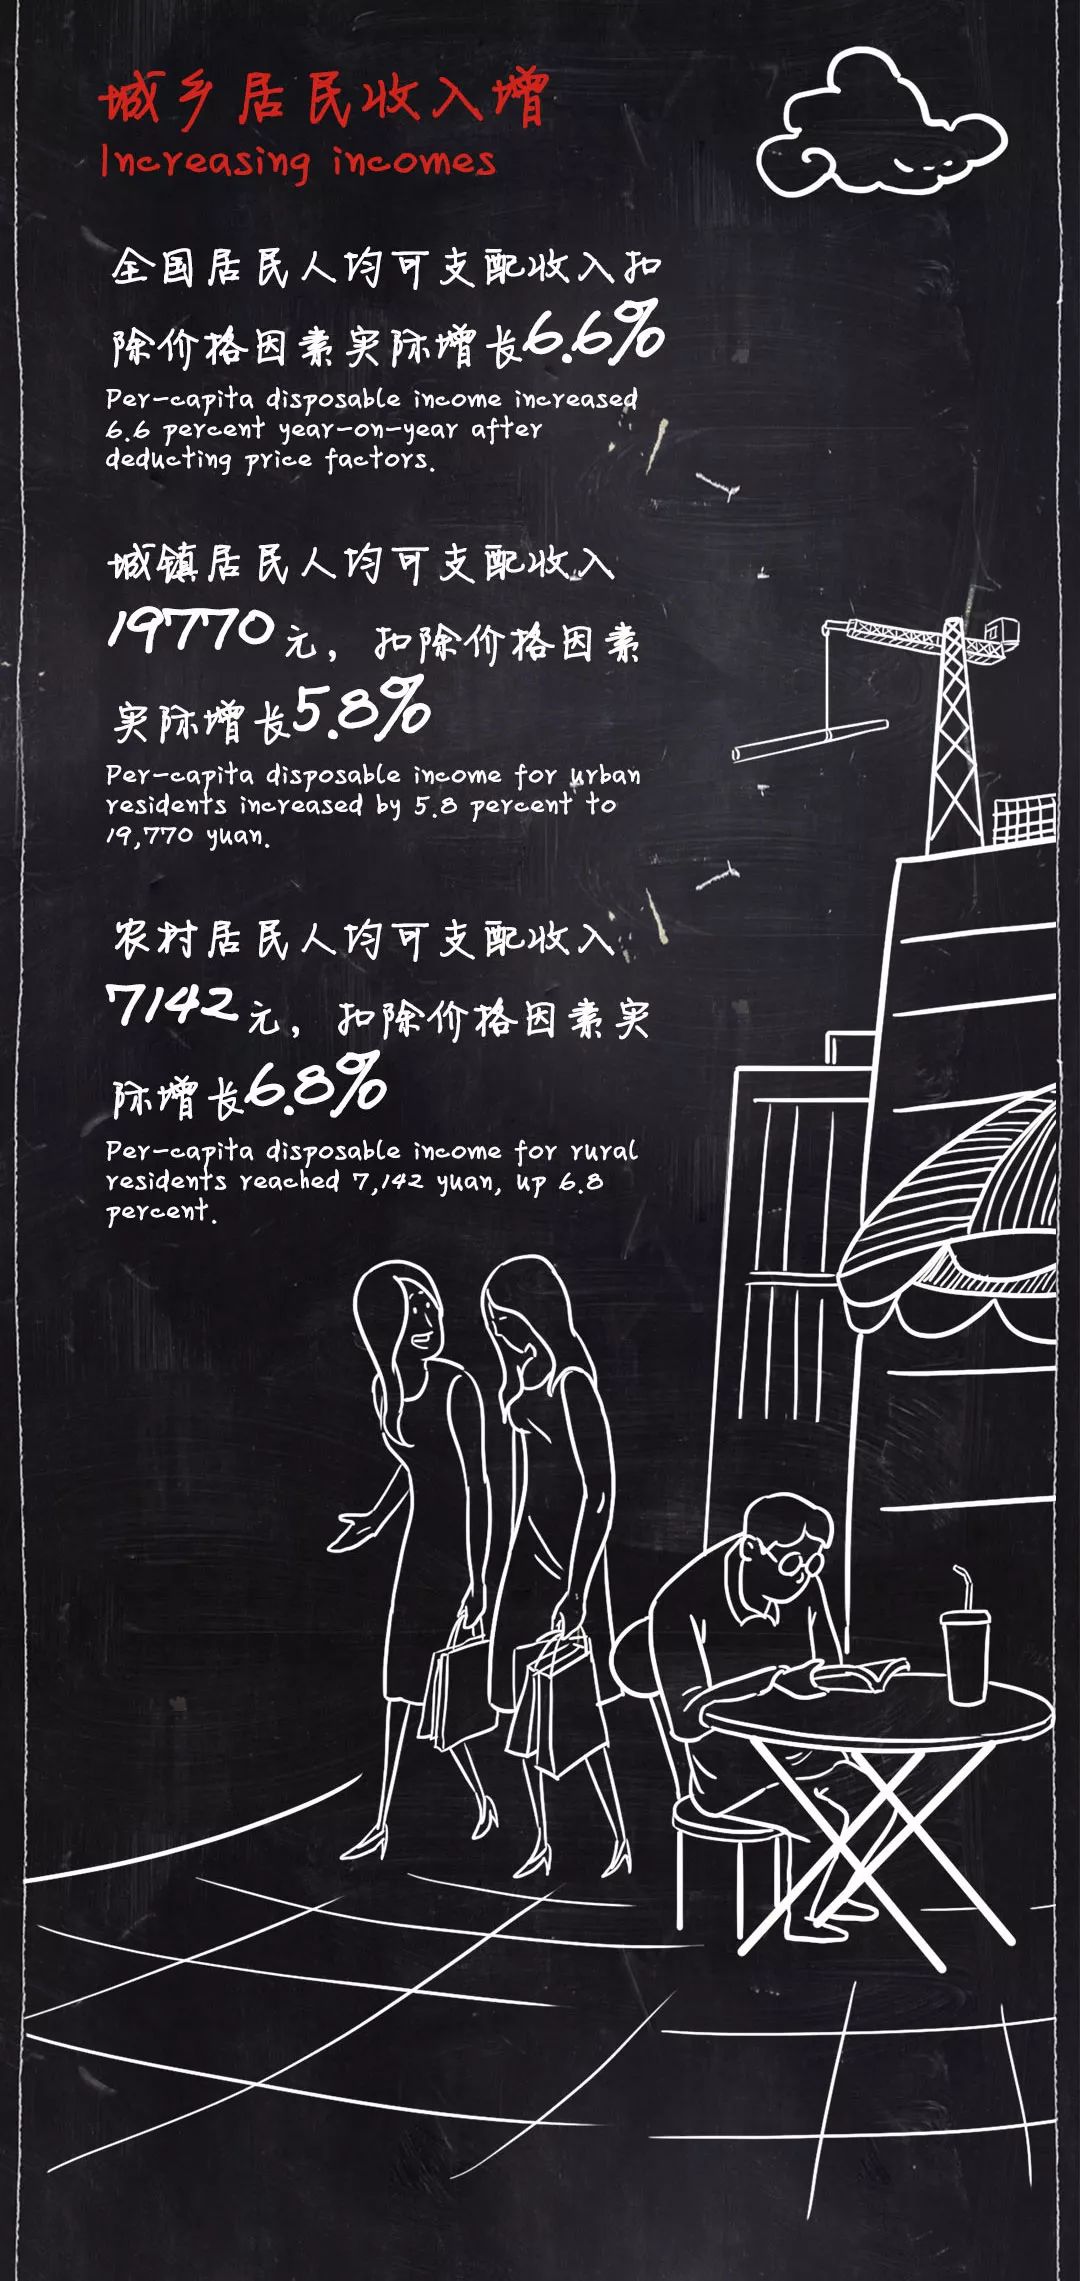 城乡居民收入增
Increasing incomes
全国居民人均可支配收入扣
除价格因素实际增长6.6%
Per-capita disposable income increased
6.6 percent year-on-year after
deducting price factors.
城镇居民人均可支配收入
19770元，扣除价格因素
实际增长5.8%
Per-capita disposable income for urban
residents increased by 5.8 percent to
19,770 yuan.
农村居民人均可支配收入
7142元，扣除价格因素实
际增长6.8%
Per-capita disposable income for rural
residents reached 7,142 yuan, up 6.8
percent.